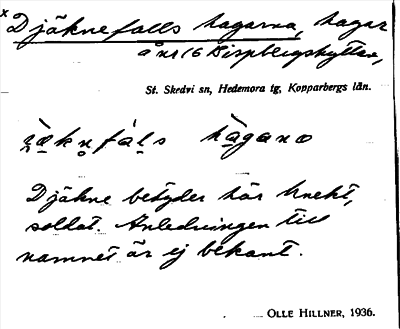 x Djäknefalls hagarna, hagar
å nr 16 Bispbergshyttan,
St. Skedvi sn, Hedemora tg, Kopparbergs län.
hàgano
Djäkne betyder här knekt,
soldat. Anledningen till
namnet är ej bekant.
OLLE HILLNER, 1936.